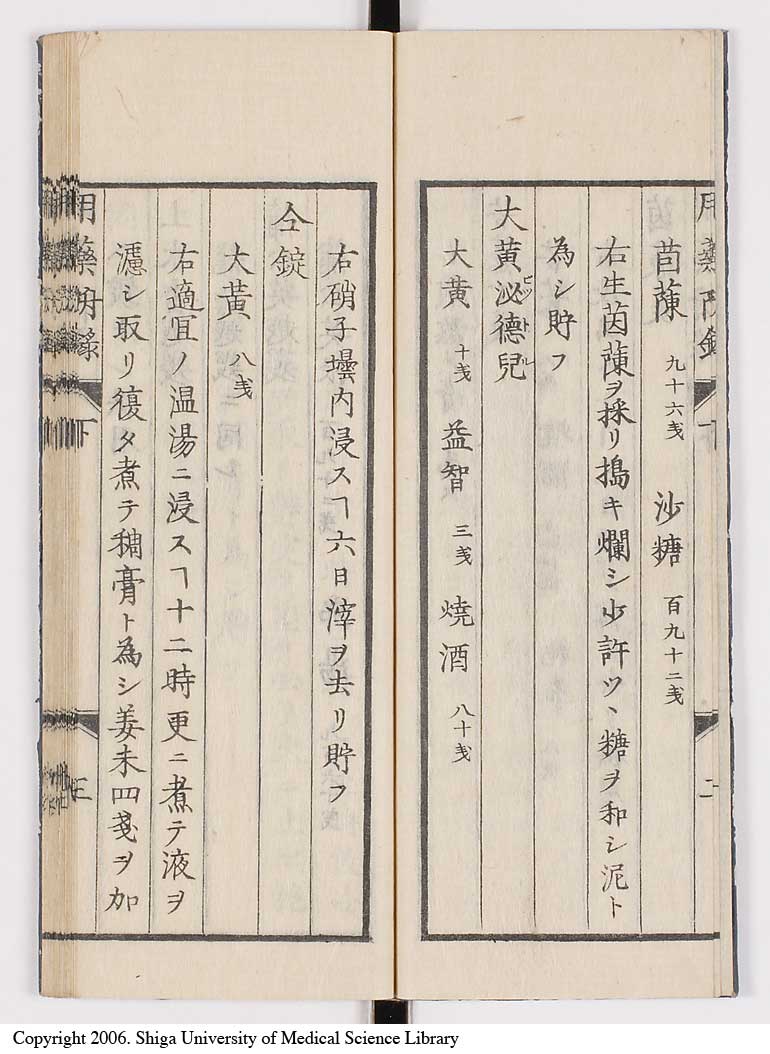 茵蔯 九十六戔 沙糖 百九十二戔
右生茵蔯ヲ採リ搗キ爛シ少許ツヽ糖ヲ和シ泥ト
為シ貯フ
大黄泌德兒
ビツトル
大黄 十戔 益智 三戔 燒酒 八十戔
右硝子壜内浸スヿ六日滓ヲ去リ貯フ
仝錠
大黄 八戔
右適宜ノ温湯ニ浸スヿ十二時更ニ煮テ液ヲ
濾シ取リ復タ煮テ稠膏ト為シ姜末四戔ヲ加
用藥附録 下 三
Copyright 2006. Shiga University of Medical Science Library